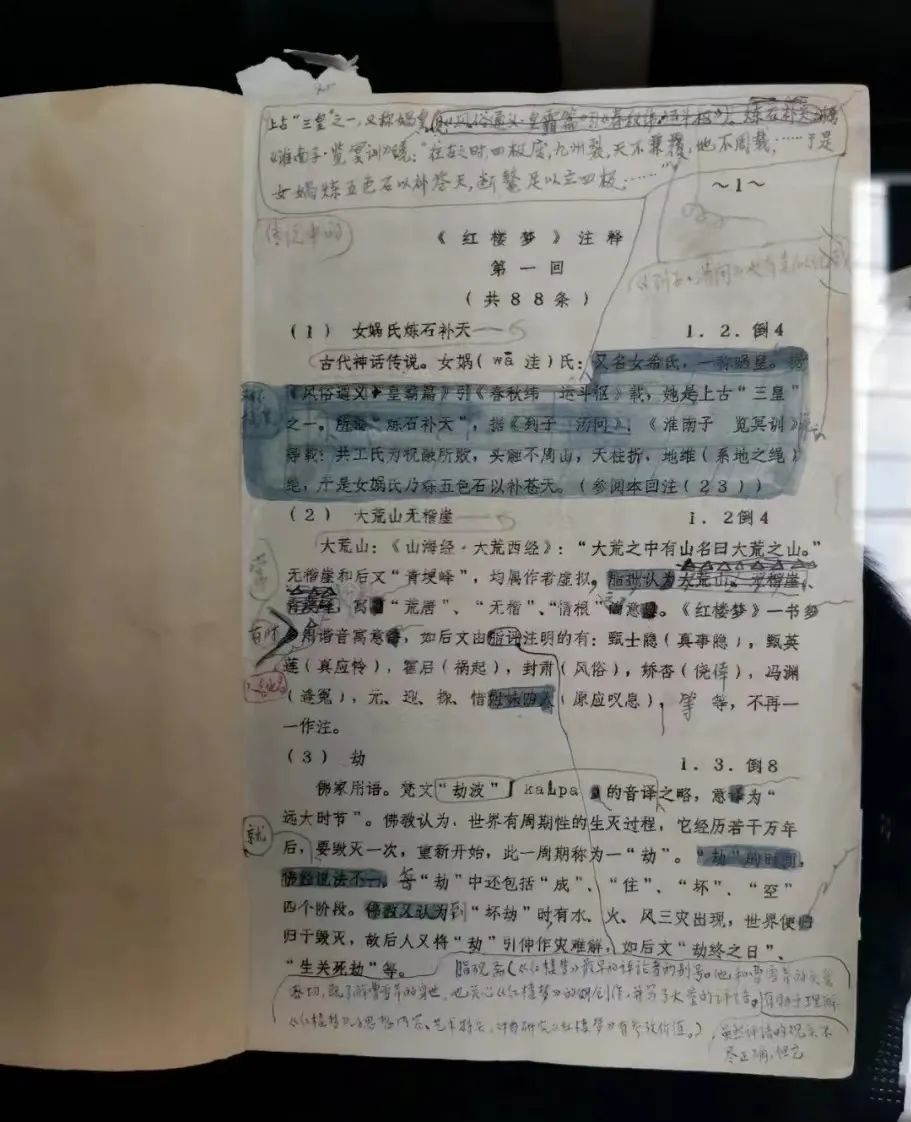 上古“三皇”之一,又称娲皇(见《风俗通义·皇霸篇》引《春秋纬·运斗极》),炼石补天
《淮南子·览冥训》说:“往古之时,四极废,九州裂,天不兼覆,地不周载;……于是
女娲炼五色石以补苍天,断鳌足以立四极,……”
~1~
传说中的
《红楼梦》注释
第一回
(共88条)
(1) 女娲氏炼石补天 1.2.倒4
古代神话传说。女娲(wā 洼)氏:又名女希氏,一称娲皇。据
《风俗通义·皇霸篇》引《春秋纬 运斗枢》载,她是上古“三皇”
之一。所谓“炼石补天”,据《列子 汤问》、《淮南子 览冥训》
载:共工氏为祝融所败,头触不周山,天柱折,地维(系地之绳)
绝,于是女娲氏乃炼五色石以补苍天。(参阅本回注(23))
(2) 大荒山无稽崖 1.2倒4
大荒山:《山海经·大荒西经》:“大荒之中有山名曰大荒之山。”
无稽崖和后文“青埂峰”,均属作者虚拟。脂批认为大荒山、无稽崖、
青埂峰,寓“荒唐”、“无稽”、“情根”意。《红楼梦》一书多
有时
用谐音寓意,如后文由脂评注明的有:甄士隐(真事隐),甄英
莲(真应怜),霍启(祸起),封肃(风俗),娇杏(侥倖),冯渊
(逢冤),元、迎、探、惜姊妹四人(原应叹息),等等,不再一
一作注。
(3) 劫 1.3.倒8
佛家用语。梵文“劫波”kalpa的音译之略,意译为“
远大时节”。佛教认为,世界有周期性的生灭过程,它经历若干万年
就
后,要毁灭一次,重新开始,此一周期称为一“劫”。“劫”的时间,
佛经说法不一。每“劫”中还包括“成”、“住”、“坏”、“空”
四个阶段。佛教又认为到“坏劫”时有水、火、风三灾出现,世界便
归于毁灭,故后人又将“劫”引伸作灾难解,如后文“劫终之日”、
“生关死劫”等。
脂砚斋(《红楼梦》最早的评论者的别号。他和曹雪芹的关系
密切,既了解曹雪芹的身世,也关心《红楼梦》的创作,并写了大量的评语。有助于理解
《红楼梦》的思想内容、艺术特点,对研究《红楼梦》有参考价值。)
虽然评语的观点不
尽正确,但它